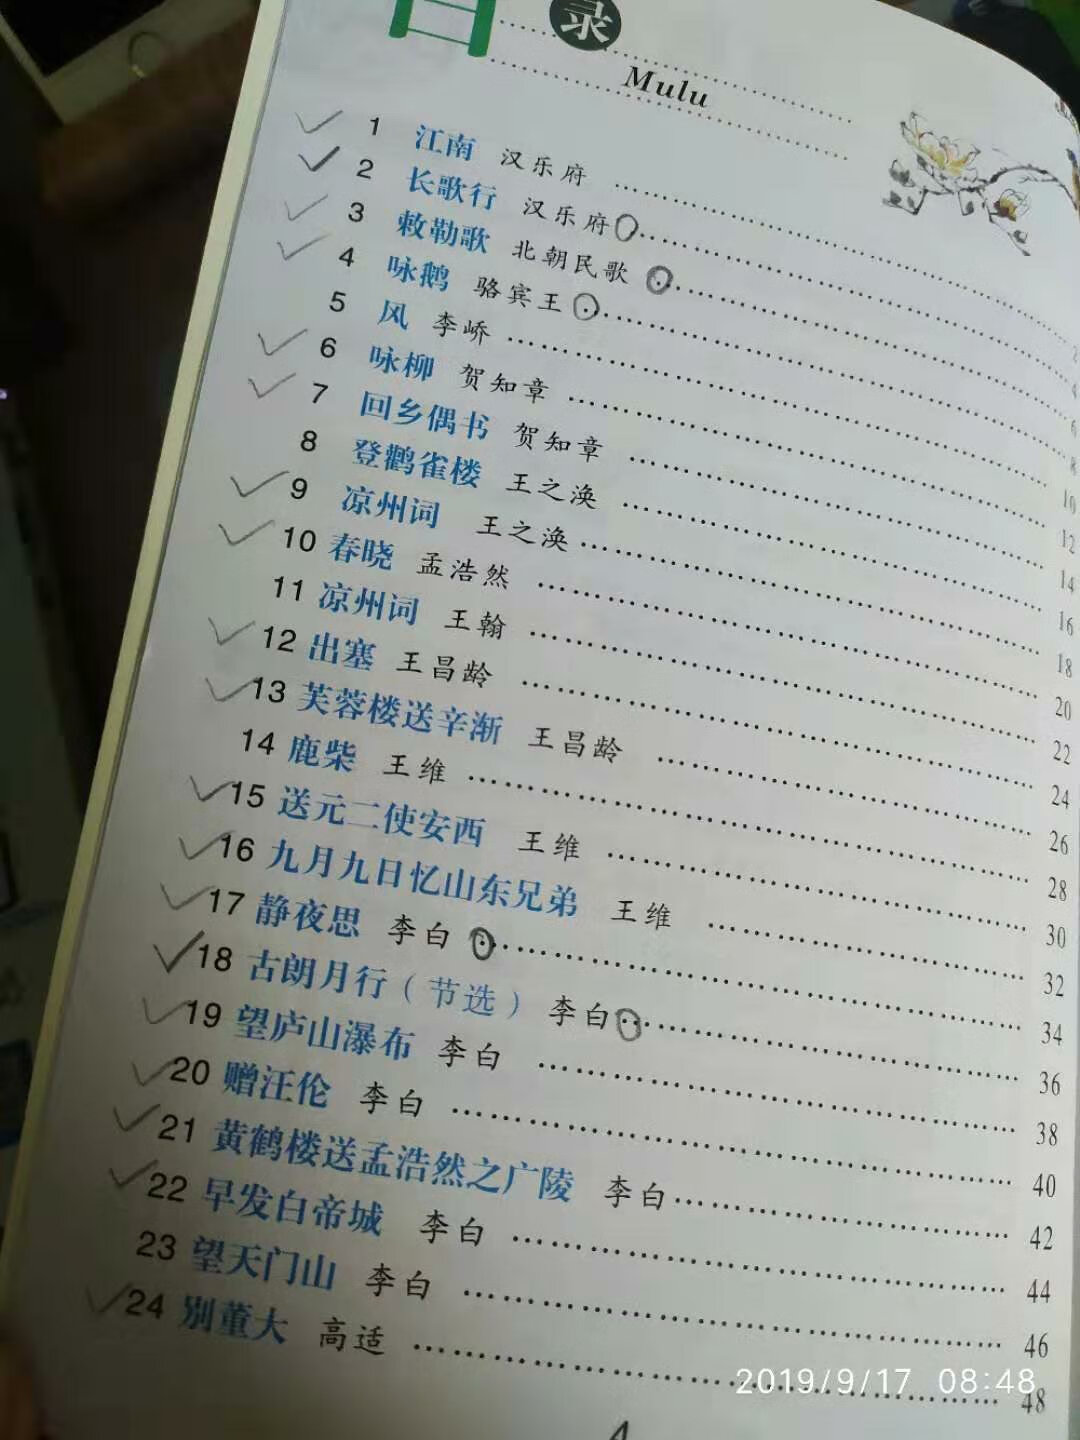 目录
Mulu
1 江南 汉乐府 …… 2
2 长歌行 汉乐府 …… 4
3 敕勒歌 北朝民歌 …… 6
4 咏鹅 骆宾王 …… 8
5 风 李峤 …… 10
6 咏柳 贺知章 …… 12
7 回乡偶书 贺知章 …… 14
8 登鹳雀楼 王之涣 …… 16
9 凉州词 王之涣 …… 18
10 春晓 孟浩然 …… 20
11 凉州词 王翰 …… 22
12 出塞 王昌龄 …… 24
13 芙蓉楼送辛渐 王昌龄 …… 26
14 鹿柴 王维 …… 28
15 送元二使安西 王维 …… 30
16 九月九日忆山东兄弟 王维 …… 32
17 静夜思 李白 …… 34
18 古朗月行（节选） 李白 …… 36
19 望庐山瀑布 李白 …… 38
20 赠汪伦 李白 …… 40
21 黄鹤楼送孟浩然之广陵 李白 …… 42
22 早发白帝城 李白 …… 44
23 望天门山 李白 …… 46
24 别董大 高适 …… 48
2019/9/17 08:48